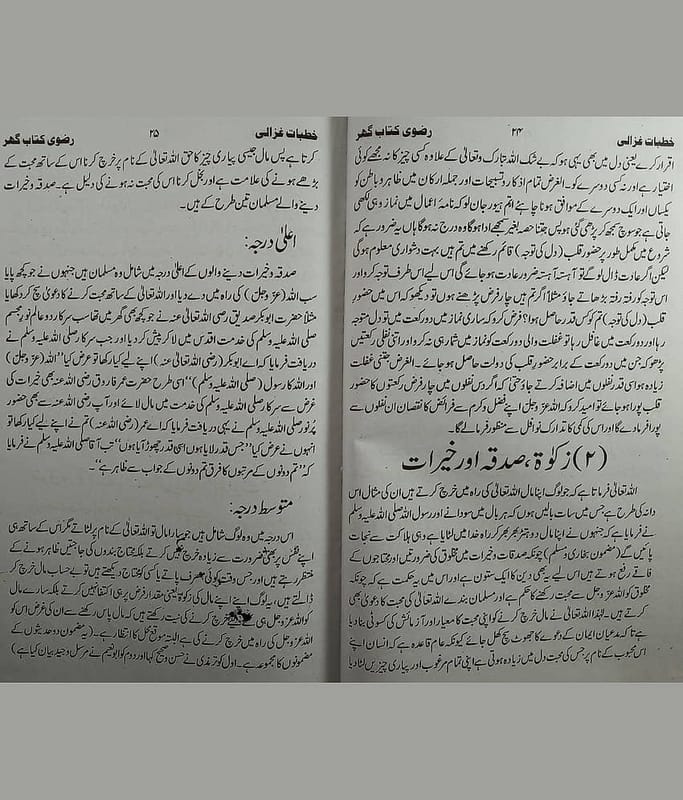 خطبات غزالی ۲۴ رضوی کتاب گھر
اقرار کرے یعنی دل میں بھی یہی ہو کہ بے شک اللہ تبارک وتعالیٰ کے علاوہ کسی چیز کا نہ مجھے کوئی
اختیار ہے اور نہ کسی دوسرے کو۔ الغرض تمام اذکار و تسبیحات اور جملہ ارکان میں ظاہر و باطن کو
یکساں اور ایک دوسرے کے موافق ہونا چاہئے اتم ہیں جان لو کہ نامۂ اعمال میں نماز وہی لکھی
جاتی ہے جو سوچ سمجھ کر پڑھی گئی ہو پس جتنا حصہ بغیر سمجھے ادا ہوگا وہ درج نہ ہوگا ہاں یہ ضرور ہے کہ
شروع میں مکمل طور پر حضور قلب (دل کی توجہ) قائم رکھنے میں تمہیں بہت دشواری معلوم ہوگی
لیکن اگر عادت ڈال لو گے تو آہستہ آہستہ ضرور عادت ہو جائے گی اس لیے اس طرف توجہ کرو اور
اس توجہ کو رفتہ رفتہ بڑھاتے جاؤ مثلاً اگر تمہیں چار فرض پڑھنے ہوں تو دیکھو کہ اس میں حضور
قلب (دل کی توجہ) تم کو کس قدر حاصل ہوا؟ فرض کرو کہ ساری نماز میں دو رکعت میں تو دل متوجہ
رہا اور دو رکعت میں غافل رہا تو غفلت والی دو رکعت کو نماز میں شمار ہی نہ کرو اور اتنی نفلی رکعتیں
پڑھو کہ جن میں دو رکعت کے برابر حضور قلب کی دولت حاصل ہو جائے۔ الغرض جتنی غفلت
زیادہ ہو اسی قدر نفلوں میں اضافہ کرتے جاؤ حتیٰ کہ اگر دس نفلوں میں چار فرض رکعتوں کا حضور
قلب پورا ہو جائے تو امید کرو کہ اللہ عزوجل اپنے فضل و کرم سے فرائض کا نقصان ان نفلوں سے
پورا فرما دے گا اور اس کی کمی کا تدارک نوافل سے منظور فرمالے گا۔
(۲) زکوٰۃ، صدقہ اور خیرات
اللہ تعالیٰ فرماتا ہے کہ جو لوگ اپنا مال اللہ تعالیٰ کی راہ میں خرچ کرتے ہیں ان کی مثال اس
دانہ کی طرح ہے جس میں سات بالیں ہوں کہ ہر بال میں سو دانے اور رسول اللہ صلی اللہ علیہ وسلم
نے فرمایا ہے کہ جنہوں نے اپنا مال دو ہتڑ بھر بھر کر راہ خدا میں لٹایا ہے وہی ہلاکت سے نجات
پائیں گے (مضمون بخاری و مسلم) چونکہ صدقات و خیرات میں مخلوق کی ضرورتیں اور محتاجوں کے
فاقے رفع ہوتے ہیں اس لیے یہ بھی دین کا ایک ستون ہے اور اس میں یہ حکمت ہے کہ چونکہ
مخلوق کو اللہ عزوجل سے محبت رکھنے کا حکم ہے اور مسلمان بندے اللہ تعالیٰ کی محبت کا دعویٰ بھی
کرتے ہیں۔ لہٰذا اللہ تعالیٰ نے مال خرچ کرنے کو اپنی محبت کا معیار اور آزمائش کی کسوٹی بنا دیا
ہے تاکہ مدعیان ایمان کے دعوے کا جھوٹ سچ کھل جائے کیونکہ عام قاعدہ ہے کہ انسان اپنے
اس محبوب کے نام پر جس کی محبت دل میں زیادہ ہوتی ہے اپنی تمام مرغوب اور پیاری چیزیں لٹا دیا
خطبات غزالی ۲۵ رضوی کتاب گھر
کرتا ہے پس مال جیسی پیاری چیز کا حق اللہ تعالیٰ کے نام پر خرچ کرنا اس کے ساتھ محبت کے
بڑھے ہونے کی علامت ہے اور بخل کرنا اس کی محبت نہ ہونے کی دلیل ہے۔ صدقہ و خیرات
دینے والے مسلمان تین طرح کے ہیں۔
اعلیٰ درجہ:
صدقہ و خیرات دینے والوں کے اعلیٰ درجہ میں شامل وہ مسلمان ہیں جنہوں نے جو کچھ پایا
سب اللہ (عزوجل) کی راہ میں دے دیا اور اللہ تعالیٰ کے ساتھ محبت کرنے کا دعویٰ سچ کر دکھایا
مثلاً حضرت ابوبکر صدیق رضی اللہ تعالیٰ عنہ نے جو کچھ بھی گھر میں تھا سب سرکار دو عالم نور مجسم
صلی اللہ علیہ وسلم کی خدمت اقدس میں لا کر پیش کر دیا اور جب سرکار صلی اللہ علیہ وسلم نے
دریافت فرمایا کہ اے ابوبکر (رضی اللہ تعالیٰ عنہ) اپنے لیے کیا رکھا تو عرض کیا ”اللہ (عزوجل)
اور اللہ کا رسول (صلی اللہ علیہ وسلم)“ اسی طرح حضرت عمر فاروق رضی اللہ عنہ بھی خیرات کی
غرض سے سرکار صلی اللہ علیہ وسلم کی خدمت میں مال لائے اور آپ رضی اللہ عنہ سے بھی حضور
پُرنور صلی اللہ علیہ وسلم نے یہی دریافت فرمایا کہ اے عمر (رضی اللہ عنہ) تم نے اپنے لیے کیا رکھا تو
انہوں نے عرض کیا ”جس قدر لایا ہوں اسی قدر چھوڑ آیا ہوں“ تب آقا صلی اللہ علیہ وسلم نے فرمایا
کہ ”تم دونوں کے مرتبوں کا فرق تم دونوں کے جواب سے ظاہر ہے“۔
متوسط درجہ:
اس درجہ میں وہ لوگ شامل ہیں جو سارا مال تو اللہ تعالیٰ کے نام پر لٹاتے مگر اس کے ساتھ ہی
اپنے نفس پر بھی ضرورت سے زیادہ خرچ نہیں کرتے بلکہ محتاج بندوں کی حاجتیں ظاہر ہونے کے
منتظر رہتے ہیں اور جس وقت کوئی مصرف پاتے یا کسی کو محتاج دیکھتے ہیں تو بے حساب مال خرچ کر
ڈالتے ہیں، یہ لوگ اپنے اپنے مال کی زکوٰۃ یعنی مقدار فرض پر ہی اکتفا نہیں کرتے بلکہ سارے مال
کو اللہ عزوجل ہی کے لیے خرچ کرنے کی نیت رکھتے ہیں کہ مال پاس رکھنے سے ان کی غرض اس کو
اللہ عزوجل کی راہ میں خرچ کرنے کی ہے البتہ موقع محل کا انتظار ہے۔ (یہ مضمون دو حدیثوں کے
مضمونوں کا مجموعہ ہے۔ اول کو ترمذی نے حسن و صحیح کہا اور دوم کو ابونعیم نے مرسل وجید بیان کیا ہے)